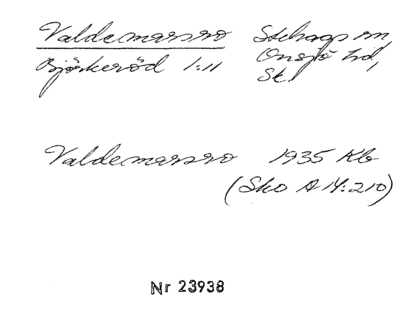 Valdemarsro Stehags sn,
Björkeröd 1:11 Onsjö hd,
Sk.
Valdemarsro 1935 Kb
(Sko A 14:210)
Nr 23938